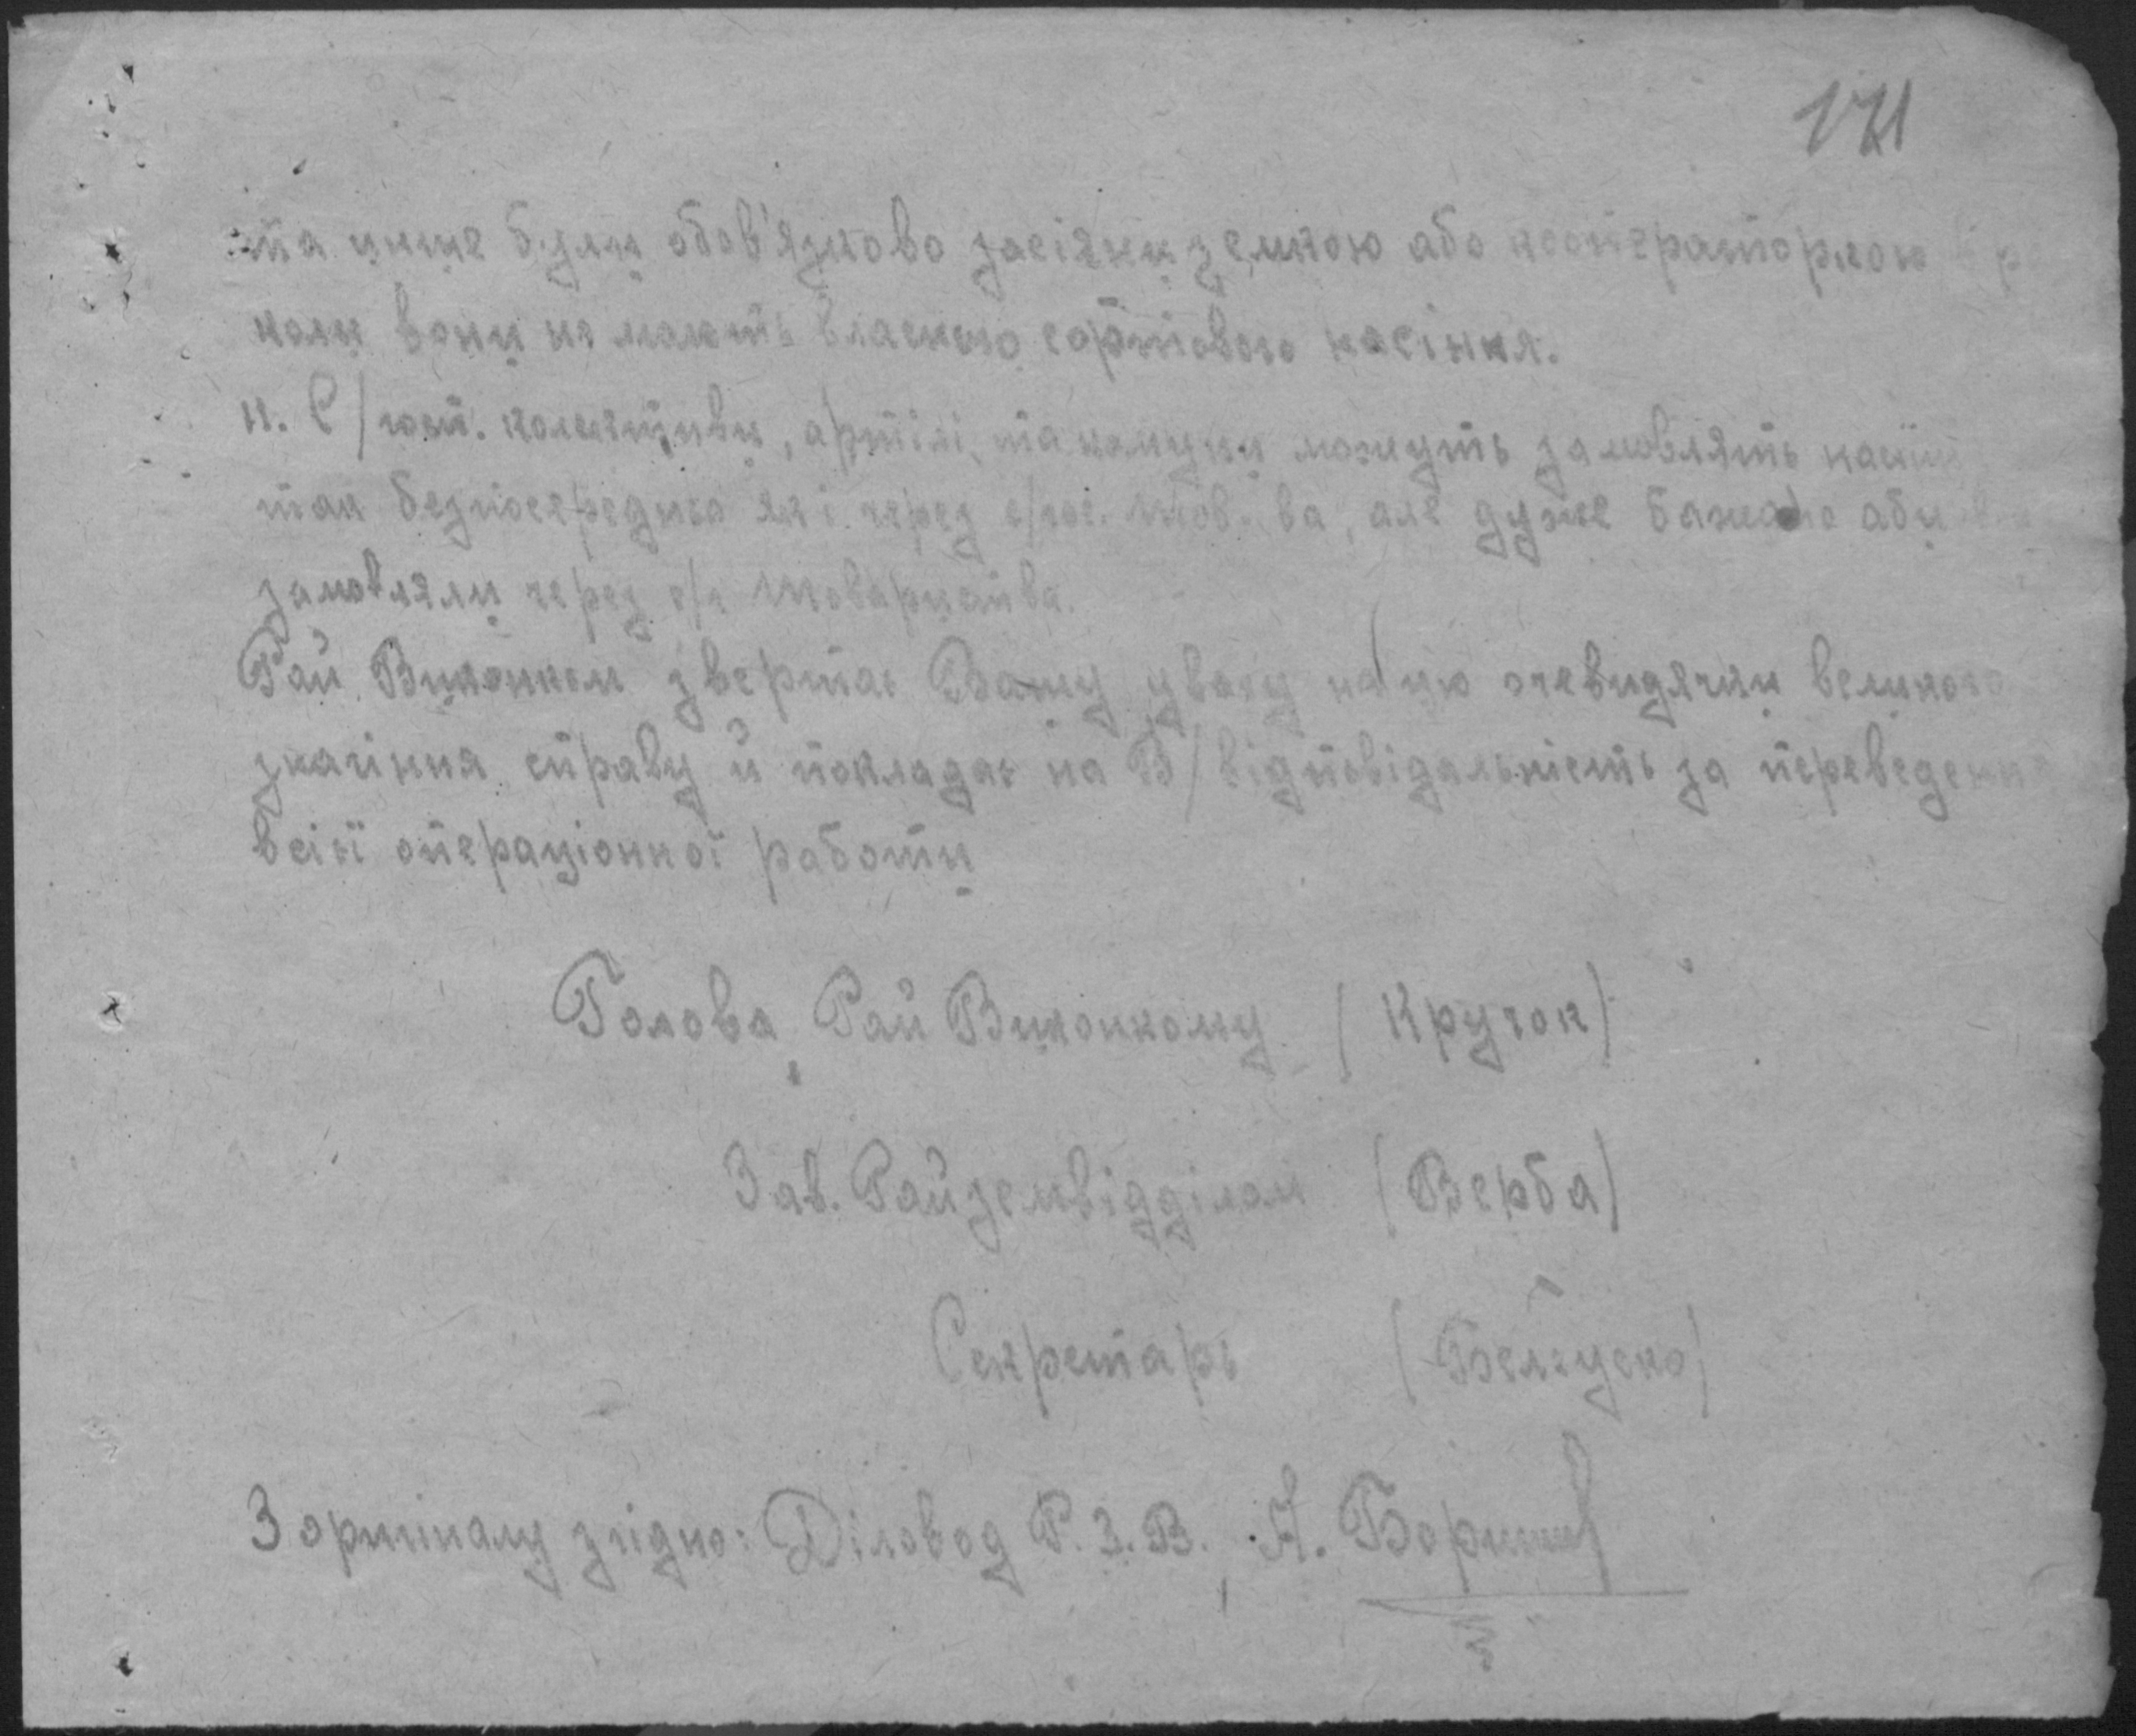 171
та инше були обов'язково засіяни земкою або кооператоркою
коли вони не мають власного сортового насіння.
11. С/госп. колективи, артілі, та комуни можуть замовлять
так безпосередньо як і через с/гос. тов-ва, але дуже бажано аби
замовляли через с/г товариства.
Рай Виконком зверта Вашу увагу на цю очевидячки великого
значіння справу й покладає на В/ відповідальність за переведення
всієї операціонної работи
Голова Рай Виконкому (Кручок)
Зав. Райземвідділом (Верба)
Секретарь
З оригіналу згідно: Діловод Р.З.В. А.